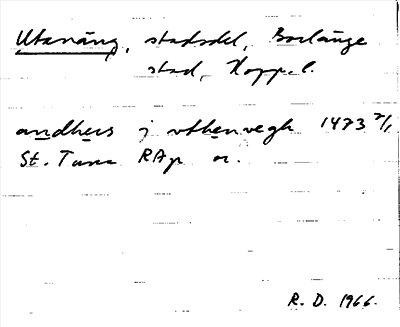 Utanäng, stadsdel, Borlänge
stad, Kopp. l.
andhers j vthenvegh 1473 7/1
St. Tuna RAp or.
R. D. 1966.